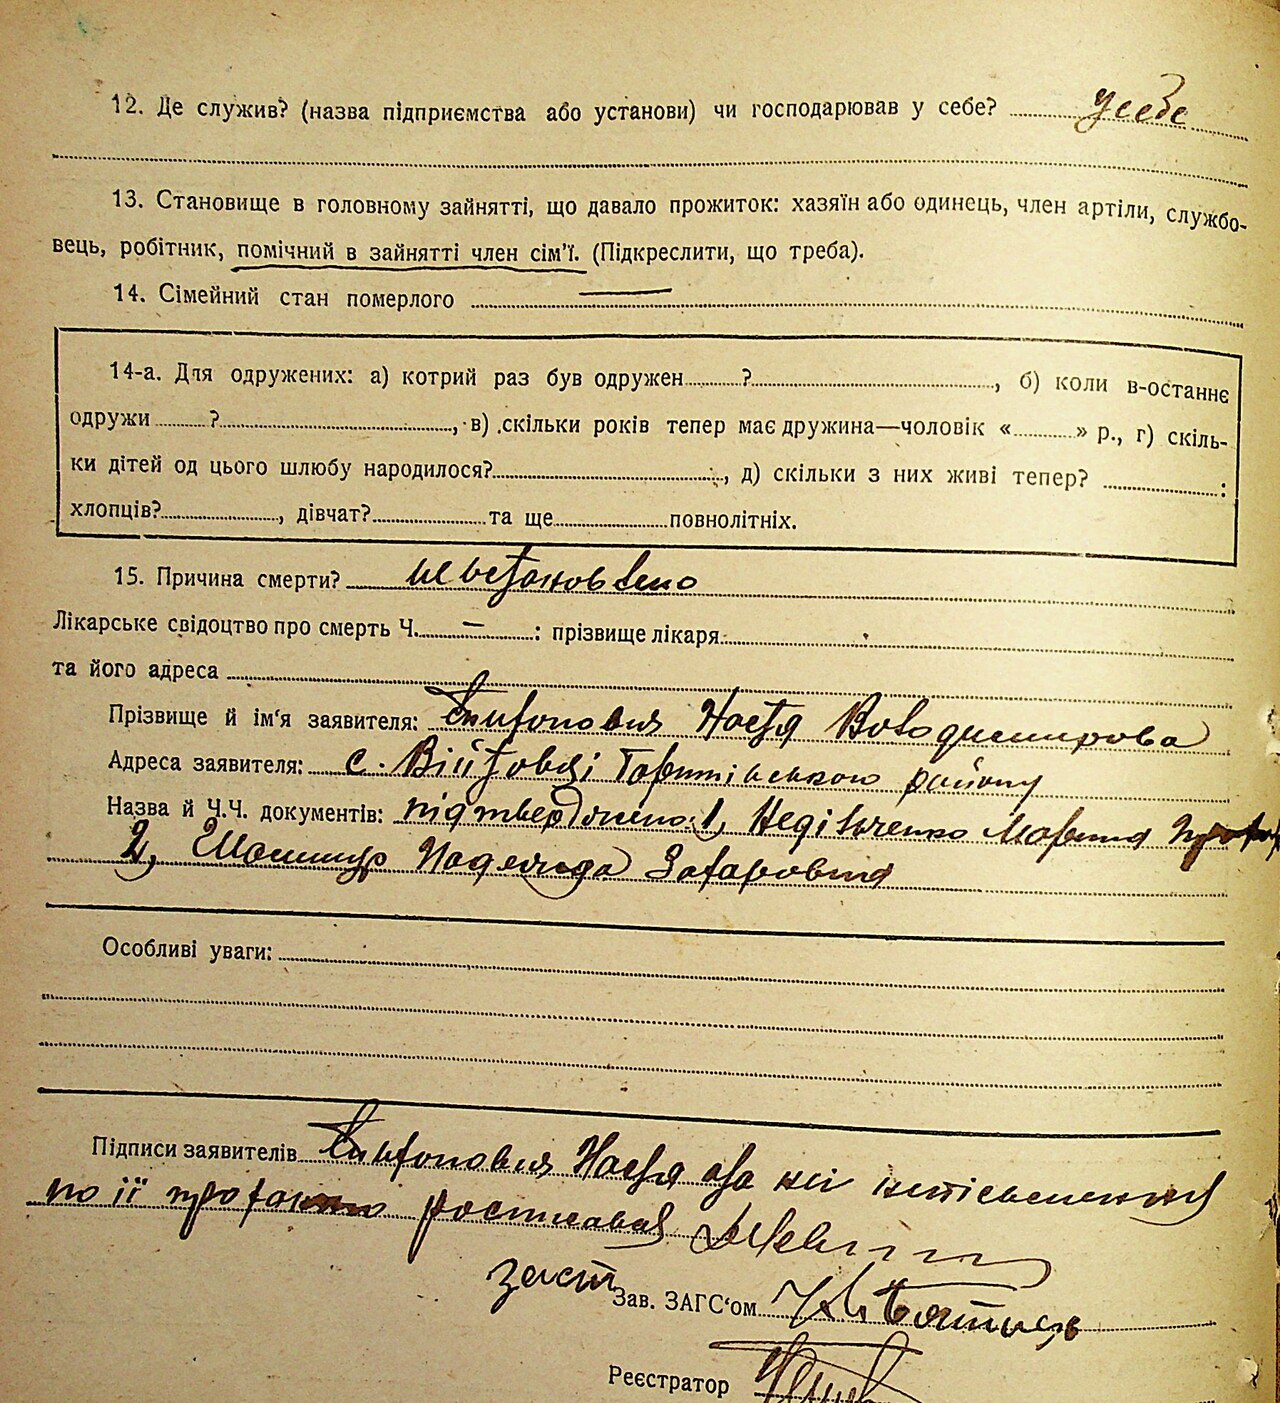 12. Де служив? (назва підприємства або установи) чи господарював у себе? у себе
13. Становище в головному зайнятті, що давало прожиток: хазяїн або одинець, член артіли, службо-
вець, робітник, помічний в зайнятті член сім'ї. (Підкреслити, що треба).
14. Сімейний стан померлого —
14-а. Для одружених: а) котрий раз був одружен ? , б) коли в-останнє
одружи ? , в) скільки років тепер має дружина—чоловік « » р., г) скіль-
ки дітей од цього шлюбу народилося? , д) скільки з них живі тепер? :
хлопців? , дівчат? та ще повнолітніх.
15. Причина смерти? не встановлено
Лікарське свідоцтво про смерть Ч. — : прізвище лікаря
та його адреса
Прізвище й ім'я заявителя: Настя Володимирова
Адреса заявителя: с. Війтовці району
Назва й Ч.Ч. документів: підтверджено: 1,
2, Захаровна
Особливі уваги:
Підписи заявителів Настя
по її
заст Зав. ЗАГС'ом
Реєстратор